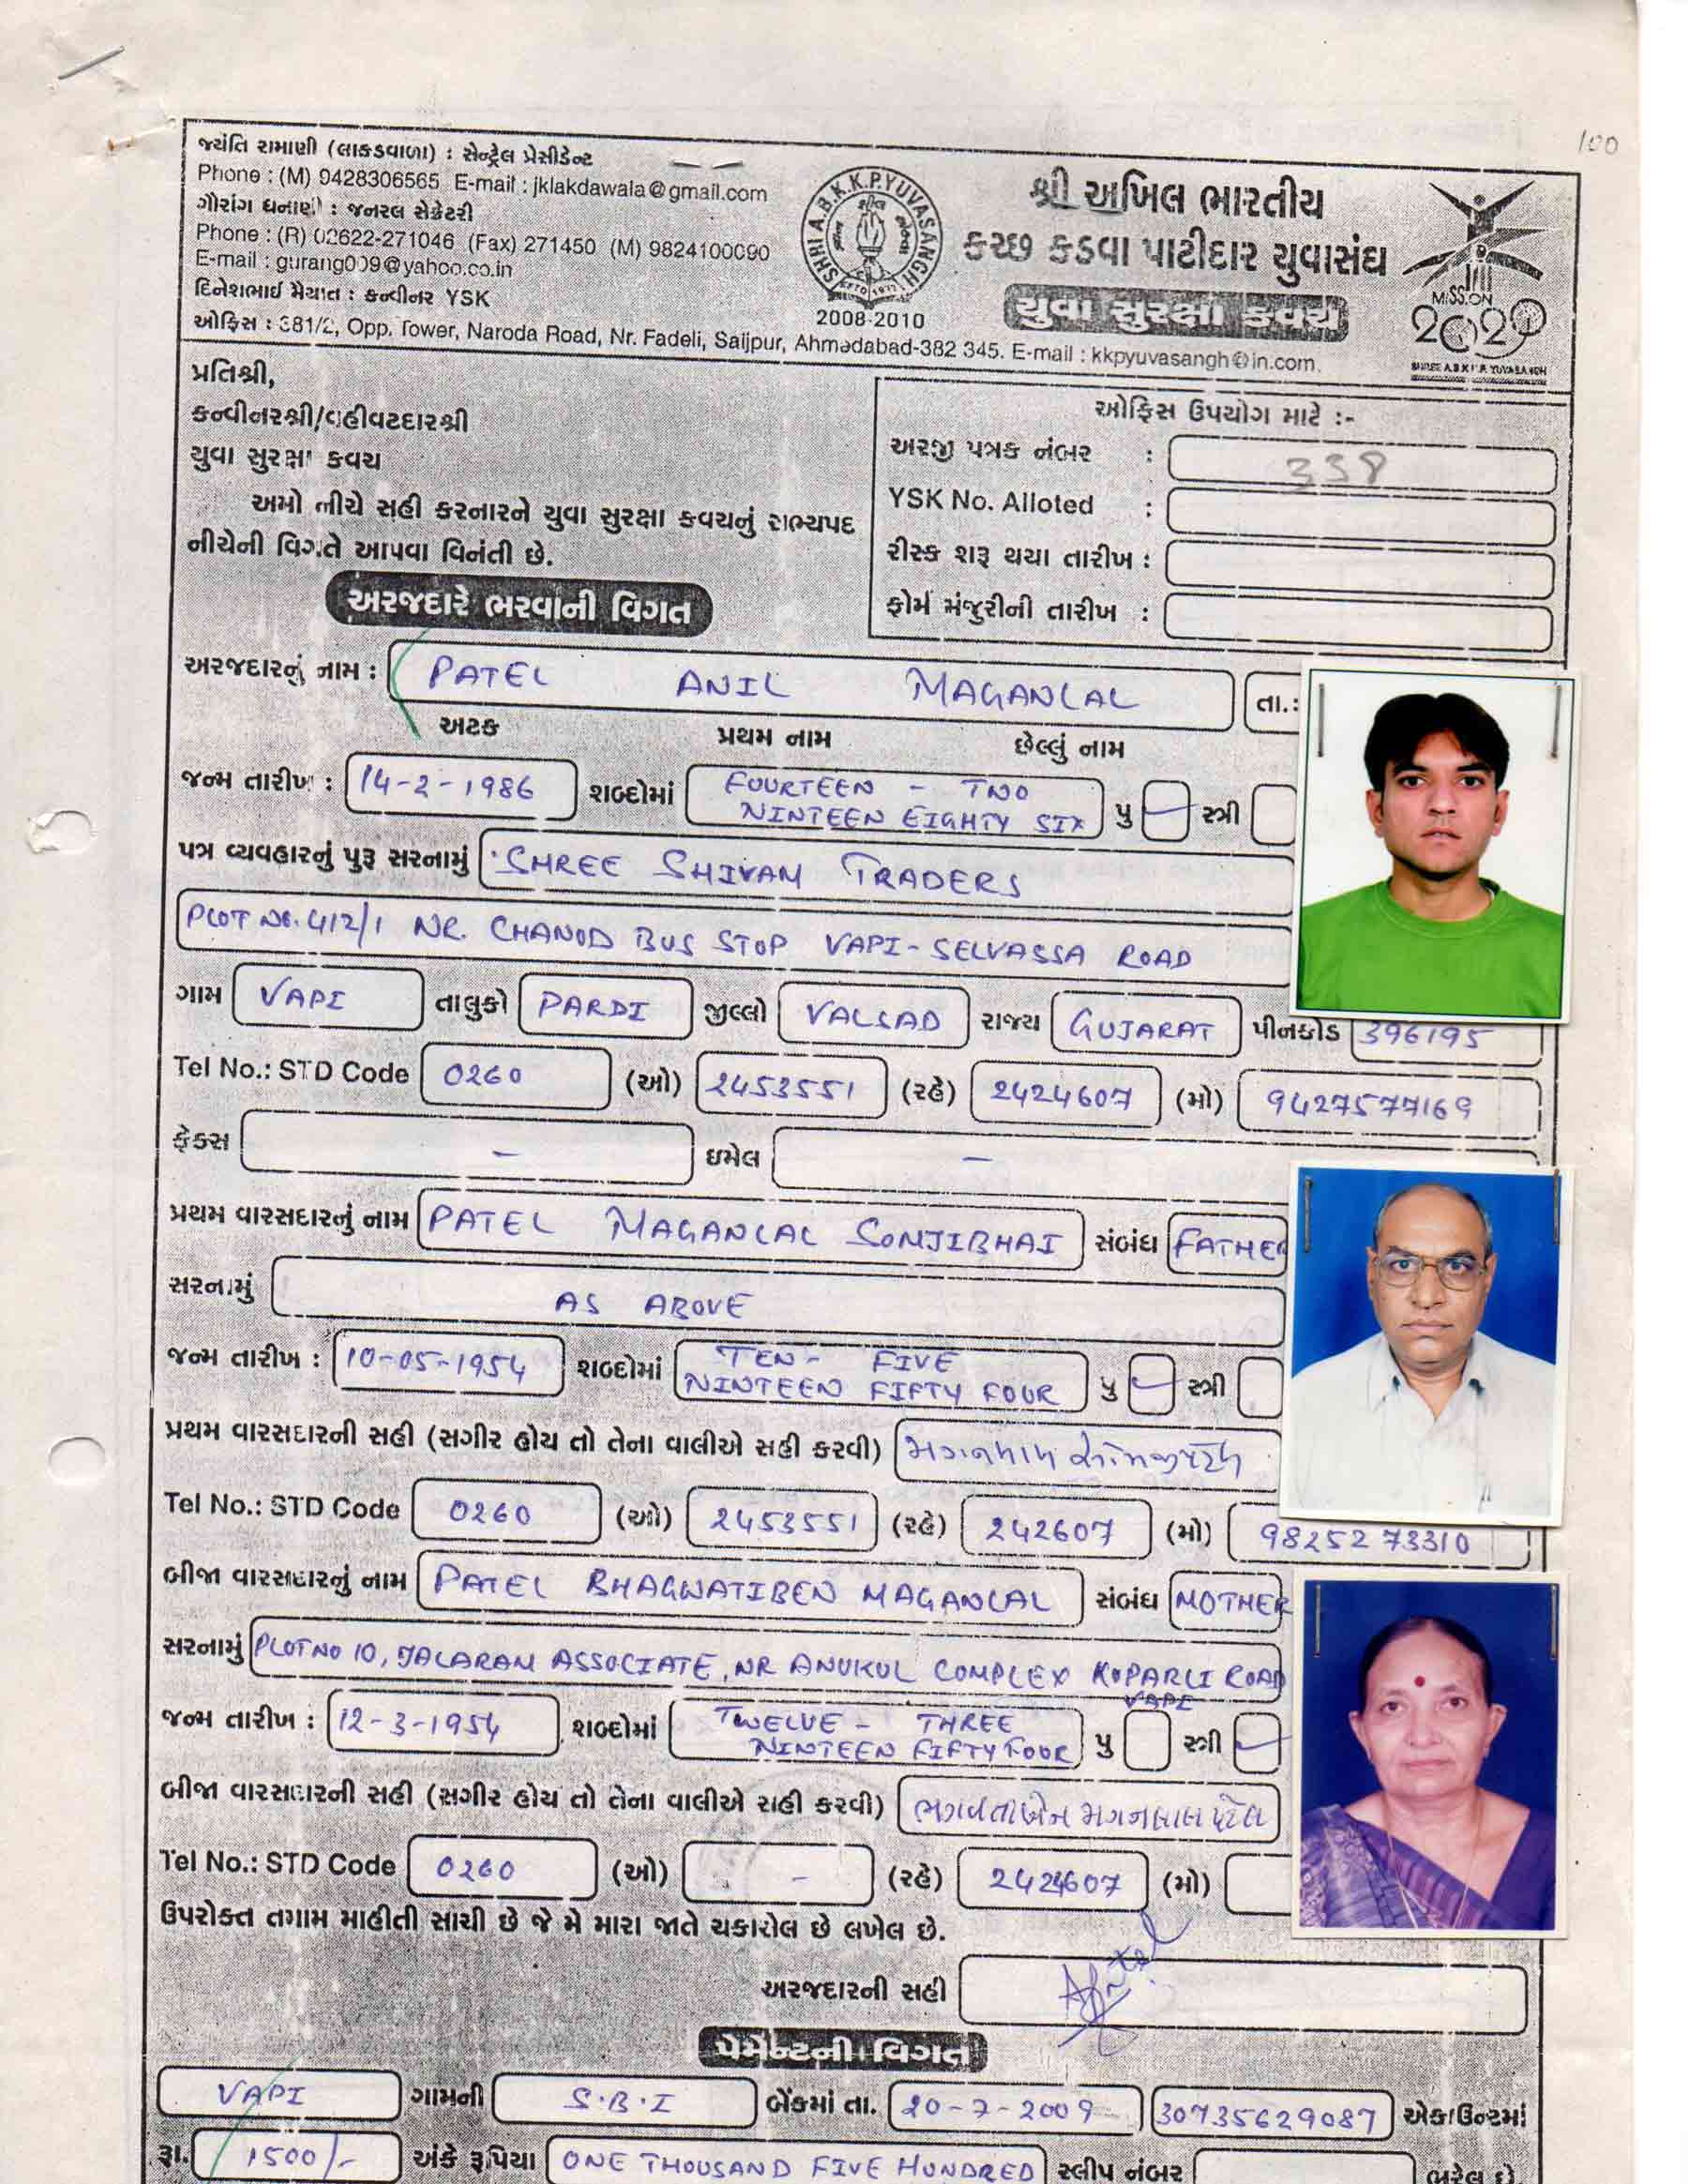 100
જયંતિ રામાણી (લાકડાવાળા) : સેન્ટ્રેલ પ્રેસીડેન્ટ
Phone : (M) 9428306565 E-mail : jklakdawala@gmail.com
ગૌરાંગ ધનાણી : જનરલ સેક્રેટરી
Phone : (R) 02622-271046 (Fax) 271450 (M) 9824100090
E-mail : gurang009@yahoo.co.in
દિનેશભાઈ મૈયાત : કન્વીનર YSK
ઓફિસ : 381/2, Opp. Tower, Naroda Road, Nr. Fadeli, Saijpur, Ahmedabad-382 345. E-mail : kkpyuvasangh@in.com.
SHRI A.B.K.K.P.YUVASANGH
2008-2010
શ્રી અખિલ ભારતીય
કચ્છ કડવા પાટીદાર યુવાસંઘ
યુવા સુરક્ષા કવચ
MISSION
2020
પ્રતિશ્રી,
કન્વીનરશ્રી/વહીવટદારશ્રી
યુવા સુરક્ષા કવચ
અમો નીચે સહી કરનારને યુવા સુરક્ષા કવચનું સભ્યપદ
નીચેની વિગતે આપવા વિનંતી છે.
ઓફિસ ઉપયોગ માટે :-
અરજી પત્રક નંબર : 338
YSK No. Alloted :
રીસ્ક શરૂ થયા તારીખ :
ફોર્મ મંજુરીની તારીખ :
અરજદારે ભરવાની વિગત
અરજદારનું નામ : PATEL ANIL MAGANLAL તા.:
અટક પ્રથમ નામ છેલ્લું નામ
જન્મ તારીખ : 14-2-1986 શબ્દોમાં FOURTEEN - TWO NINTEEN EIGHTY SIX પુ સ્ત્રી
પત્ર વ્યવહારનું પુરૂ સરનામું SHREE SHIVAM TRADERS
PLOT NO. 412/1 NR. CHANOD BUS STOP VAPI-SELVASSA ROAD
ગામ VAPI તાલુકો PARDI જીલ્લો VALSAD રાજ્ય GUJARAT પીનકોડ 396195
Tel No.: STD Code 0260 (ઓ) 2453551 (રહે) 2424607 (મો) 9427577169
ફેક્સ - ઇમેલ -
પ્રથમ વારસદારનું નામ PATEL MAGANLAL SOMJIBHAI સંબંધ FATHER
સરનામું AS ABOVE
જન્મ તારીખ : 10-05-1954 શબ્દોમાં TEN - FIVE NINTEEN FIFTY FOUR પુ સ્ત્રી
પ્રથમ વારસદારની સહી (સગીર હોય તો તેના વાલીએ સહી કરવી)
Tel No.: STD Code 0260 (ઓ) 2453551 (રહે) 242607 (મો) 9825273310
બીજા વારસદારનું નામ PATEL BHAGWATIBEN MAGANLAL સંબંધ MOTHER
સરનામું PLOT NO 10, JALARAM ASSOCIATE, NR ANUKUL COMPLEX KOPARLI ROAD VAPI
જન્મ તારીખ : 12-3-1954 શબ્દોમાં TWELVE - THREE NINTEEN FIFTY FOUR પુ સ્ત્રી
બીજા વારસદારની સહી (સગીર હોય તો તેના વાલીએ સહી કરવી) ભગવતીબેન મગનલાલ પટેલ
Tel No.: STD Code 0260 (ઓ) - (રહે) 2424607 (મો)
ઉપરોક્ત તમામ માહીતી સાચી છે જે મે મારા જાતે ચકાસેલ છે લખેલ છે.
અરજદારની સહી
પેમેન્ટની વિગત
VAPI ગામની S.B.I બેંકમાં તા. 20-7-2009 30735629087 એકાઉન્ટમાં
રૂા. 1500/- અંકે રૂપિયા ONE THOUSAND FIVE HUNDRED સ્લીપ નંબર ભરેલ છે